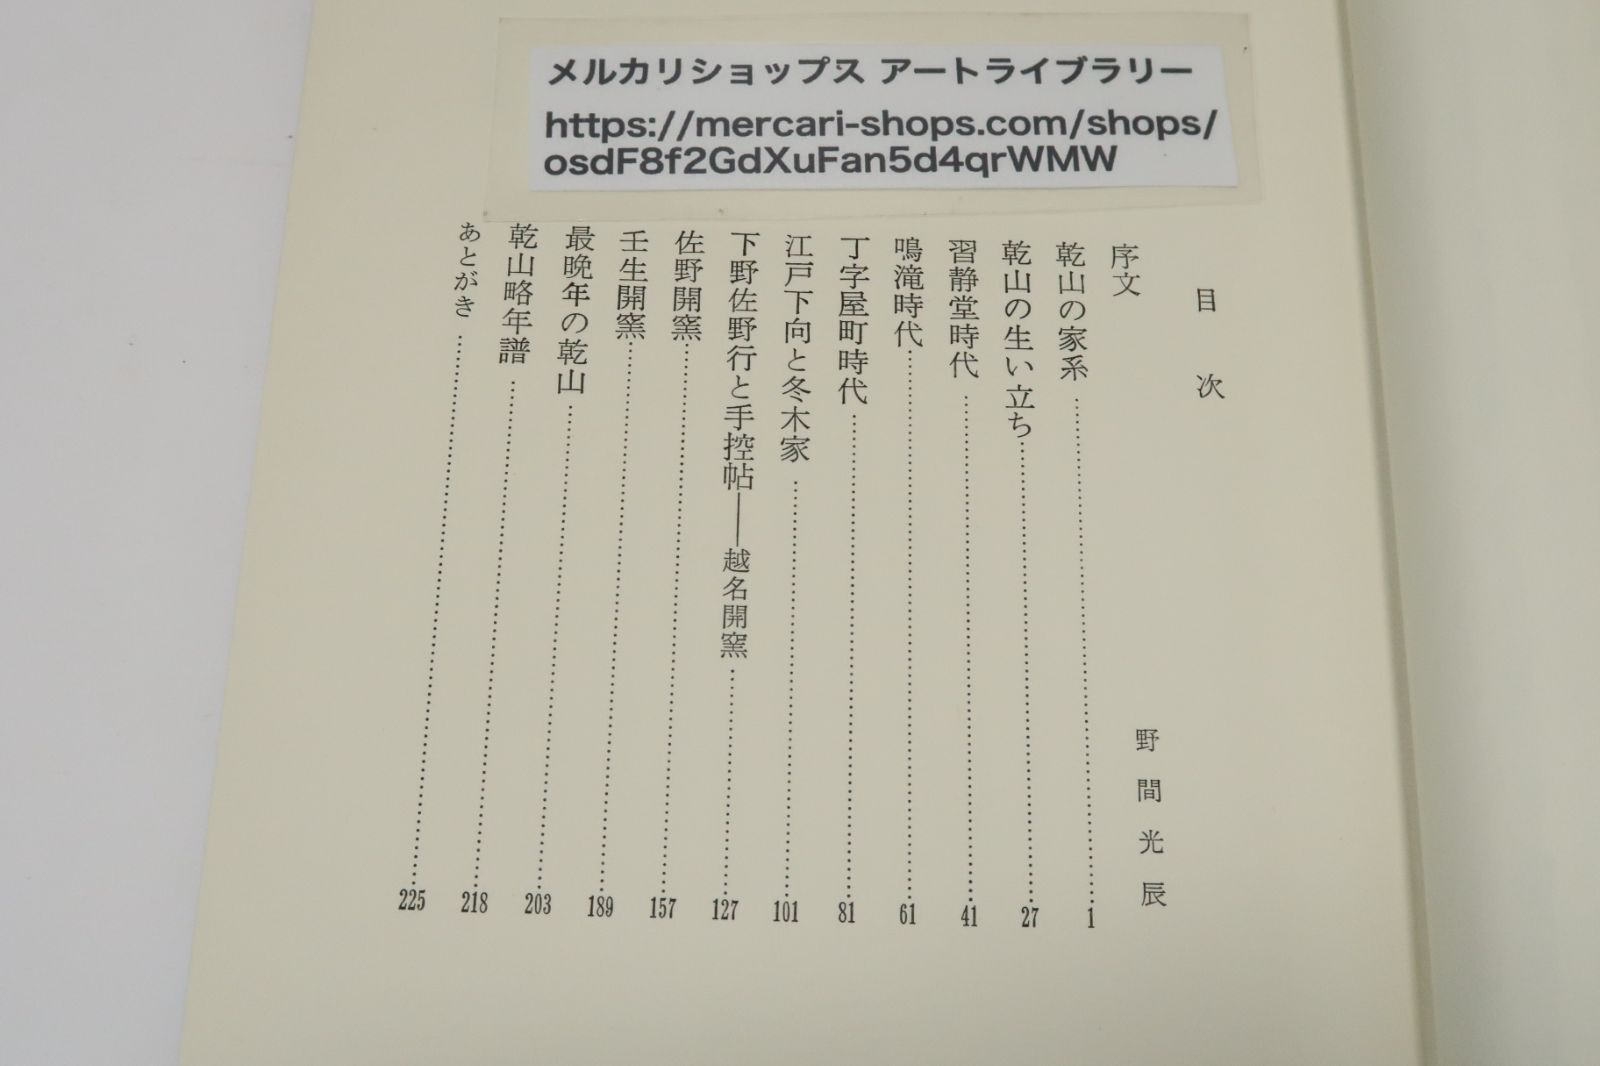 メルカリショップス アートライブラリー
https://mercari-shops.com/shops/
osdF8f2GdXuFan5d4qrWMW
目次
序文 野間光辰
乾山の家系 1
乾山の生い立ち 27
習静堂時代 41
鳴滝時代 61
丁字屋町時代 81
江戸下向と冬木家 101
下野佐野行と手控帖――越名開窯 127
佐野開窯 157
壬生開窯 189
最晩年の乾山 203
乾山略年譜 218
あとがき 225